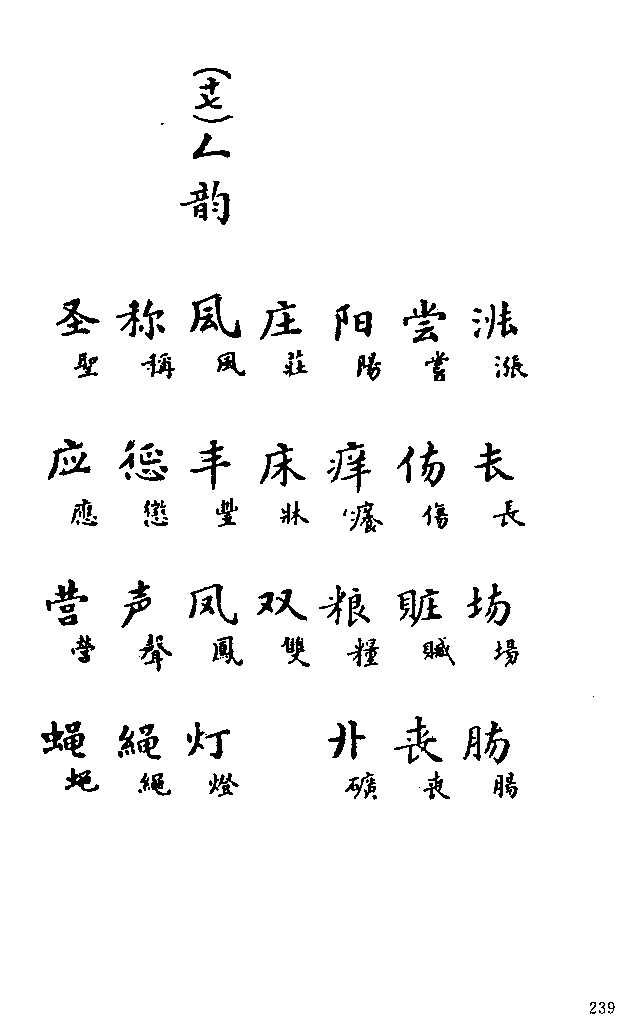 (十七)ㄥ韵
涨 漲 长 長 场 場 肠 腸
尝 嘗 伤 傷 赃 贓 丧 喪
阳 陽 痒 癢 粮 糧 卝 礦
庄 莊 床 牀 双 雙
风 風 丰 豐 凤 鳳 灯 燈
称 稱 惩 懲 声 聲 绳 繩
圣 聖 应 應 营 營 蝇 蠅
239